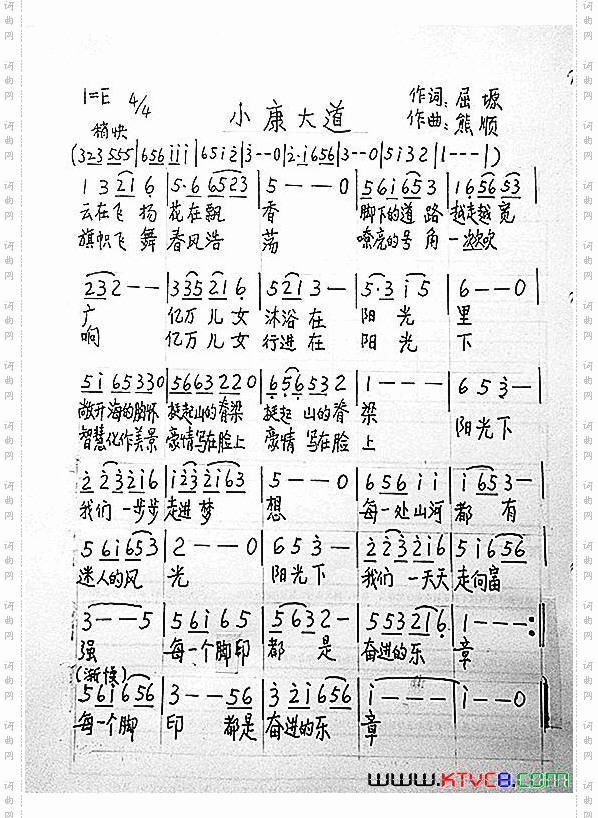 1=E 4/4
稍快
小康大道
作词:屈塬
作曲:熊顺
(323 555|656 iii|65i2|3--0|2·i656|3--0|5i32|1---|)
1 3 21 6|5·6 6523|5---0|56i653|165653|
云在飞扬 花在飘 香 脚下的道路 越走越宽
旗帜飞舞 春风浩 荡 嘹亮的号角 一次次吹
232--|335216|5213-|5·3i5|6--0|
广 亿万儿女 沐浴在 阳光 里
响 亿万儿女 行进在 阳光 下
5i65330|5663220|656532|1---|653-|
敞开海的胸怀 挺起山的脊梁 挺起山的脊 梁 阳光下
智慧化作美景 豪情写在脸上 豪情写在脸 上
223216|i232i63|5--0|656ii|i653-|
我们一步步 走进梦 想 每一处山河 都有
56i653|2--0|653-|2232i6|5i656|
迷人的风 光 阳光下 我们一天天 走向富
3--5|56i65|5632-|553216|1---:|
强 每一个脚印 都是 奋进的乐 章
(渐慢)
56i656|3--56|32i656|i---|i--0|
每一个脚 印 都是 奋进的乐 章
WWW.KTVC8.COM
词曲网